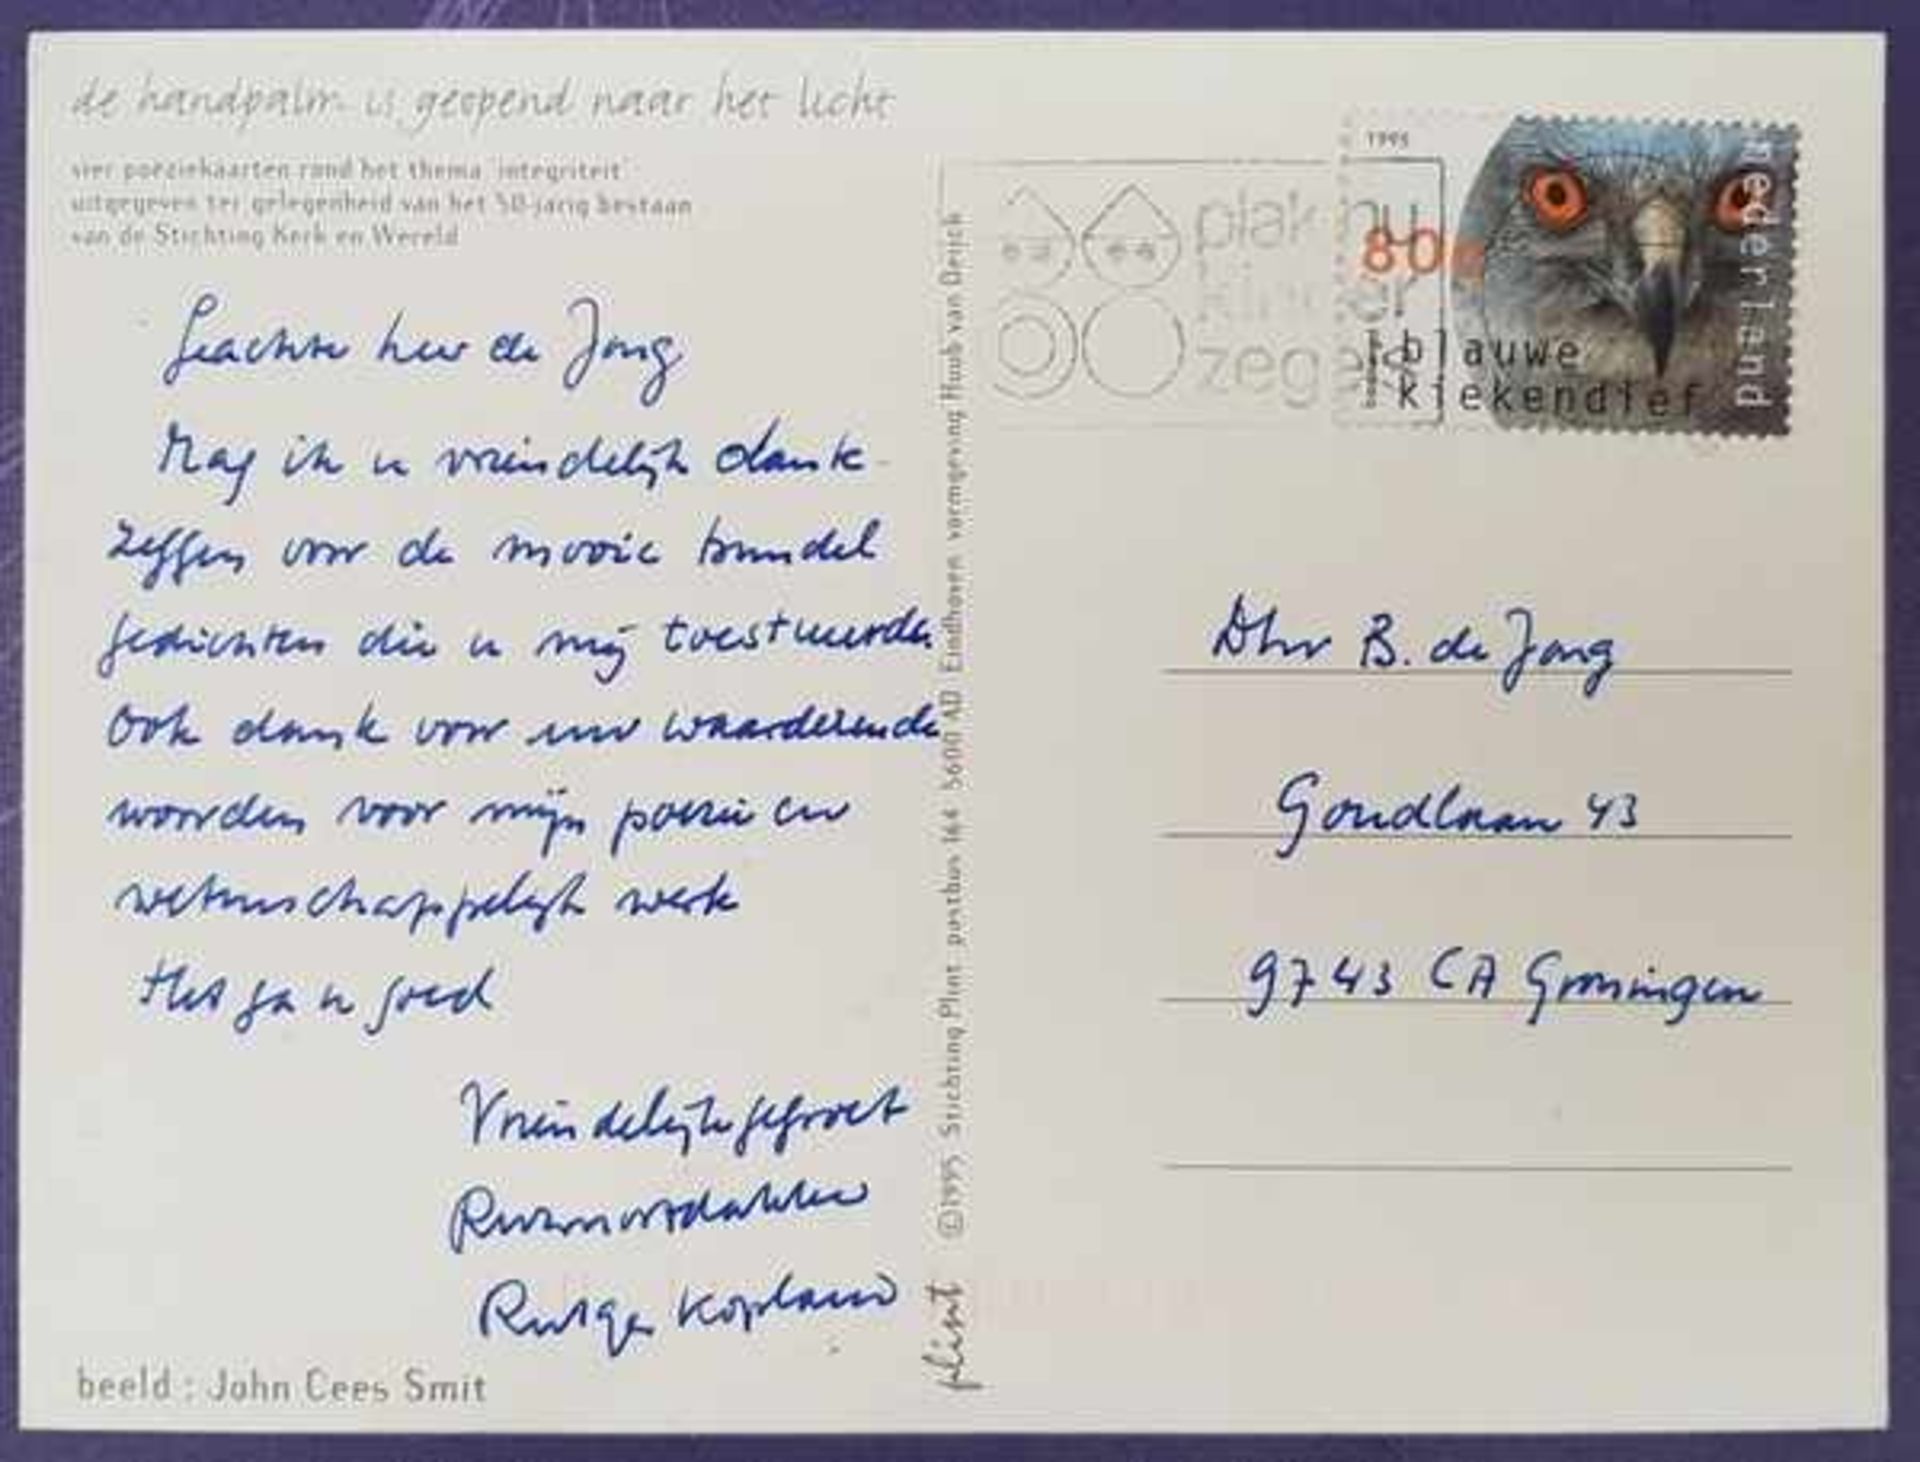 de handpalm is geopend naar het licht
vier poëziekaarten rond het thema 'integriteit'
uitgegeven ter gelegenheid van het 50-jarig bestaan
van de Stichting Kerk en Wereld
Geachte heer de Jong
Mag ik u vriendelijk dank
zeggen voor de mooie bundel
gedichten die u mij toestuurde.
Ook dank voor uw waarderende
woorden voor mijn poëzie en
wetenschappelijk werk
Het ga u goed
Vriendelijke gegroet
Rutger Kopland
beeld : John Cees Smit
©1995 Stichting Plint postbus 164 5600 AD Eindhoven vormgeving Huub van Deijck
plint
plak nu
kinder
zegels
1995
80
nederland
blauwe
kiekendief
Dhr B. de Jong
Goudlaan 43
9743 CA Groningen